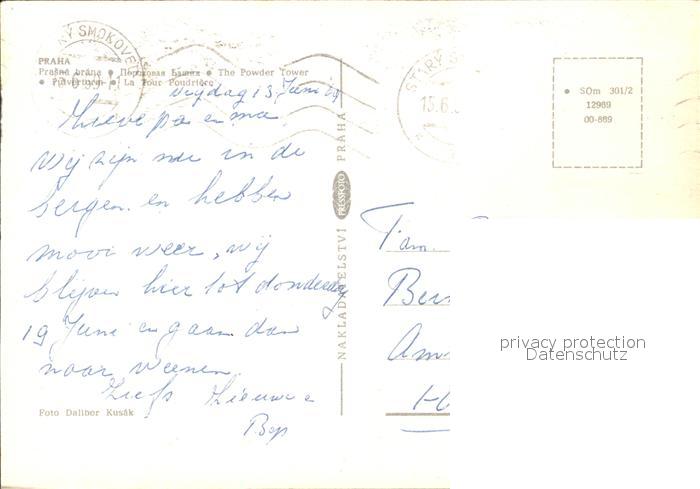 KÝ SMOKOVEC
PRAHA
Prašná brána • Пороховая Башня • The Powder Tower
• Pulverturm • La Tour Poudrière
Vrijdag 13 Juni
Lieve pa en ma
Wij zijn nu in de
bergen en hebben
mooi weer, wij
blijven hier tot donderdag
19 Juni en gaan dan
naar Weenen.
Liefs
Bep
Foto Dalibor Kusák
NAKLADATELSTVÍ PRESSFOTO PRAHA
STARÝ
13.6.
SOm 301/2
12969
00-869
Fam.
privacy protection
Datenschutz